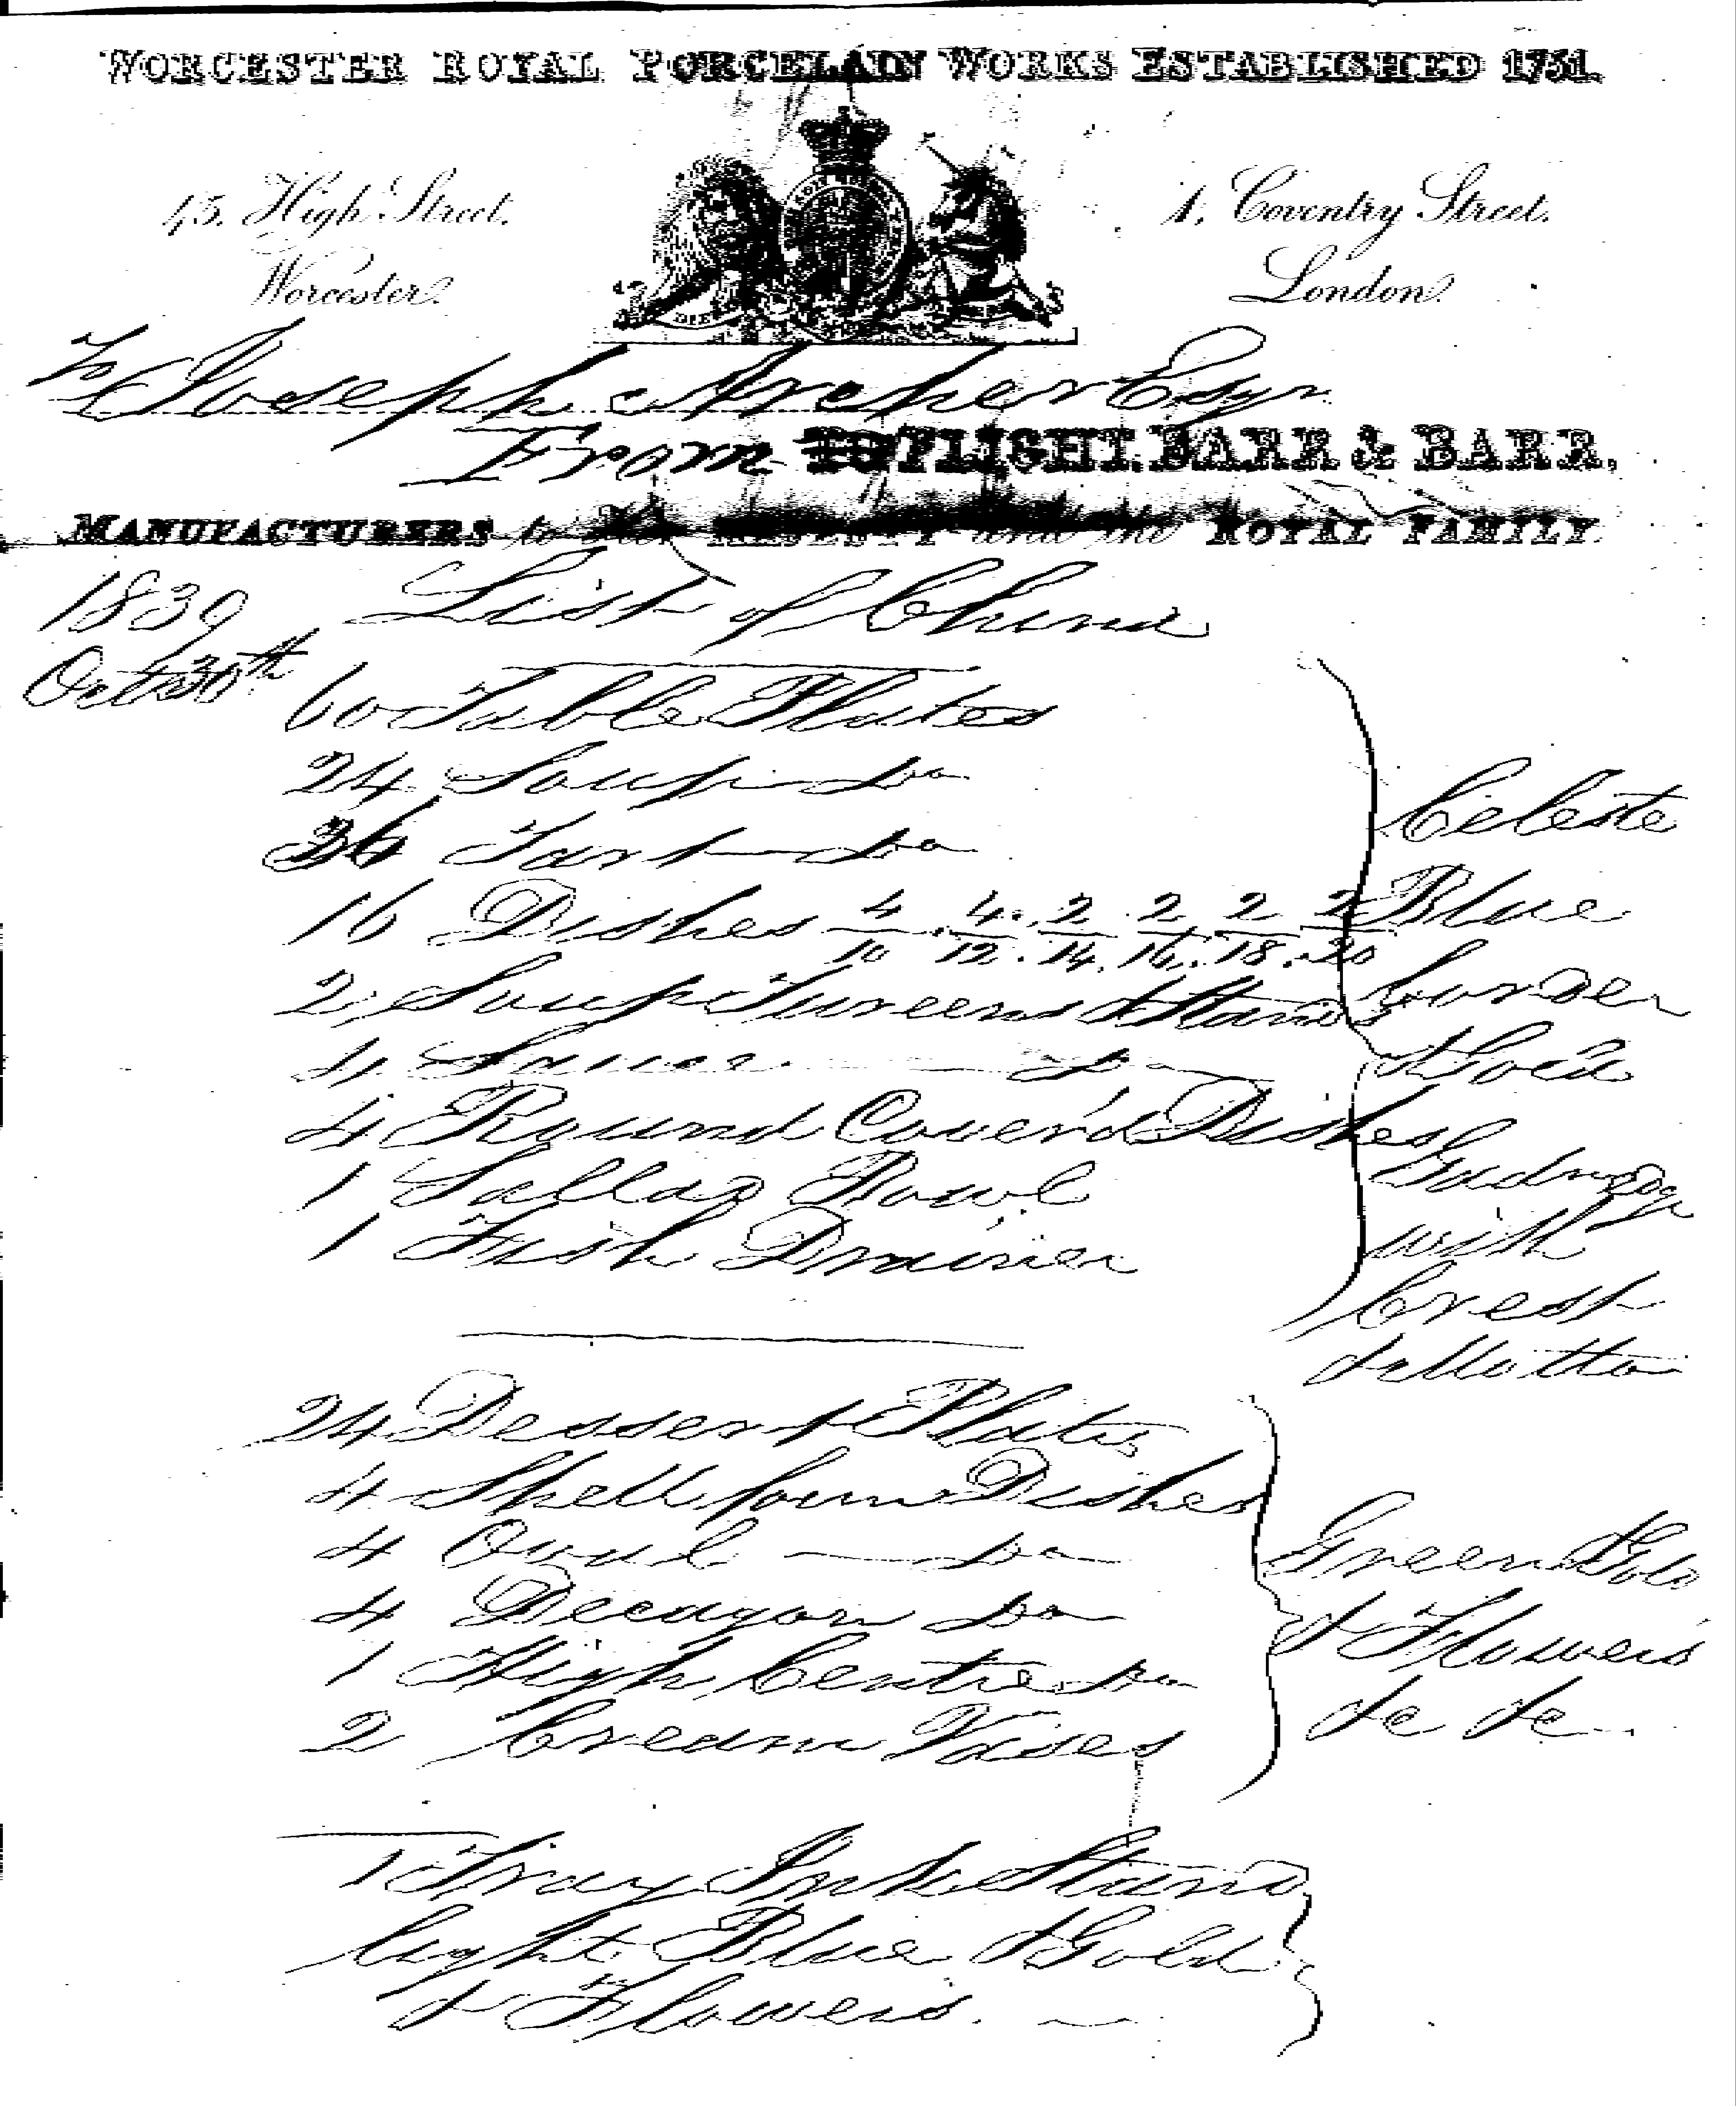 WORCESTER ROYAL PORCELAIN WORKS ESTABLISHED 1751.
45. High Street.
Worcester.
1, Coventry Street.
London.
To Joseph Archer Esqr
From TO FLIGHT, BARR & BARR,
MANUFACTURERS to MAJESTY and the ROYAL FAMILY.
1839 List of China
Oct 30th
60 Table Plates
24 Soup Do
36 Tart Do
16 Dishes 4/10 . 4/12 . 2/14 . 2/16 . 2/18 . 2/20
2 Soup Tureens & Stands
4 Sauce Do
4 Round Cover'd Dishes
1 Sallad Bowl
1 Fish Drainer
Celeste
Blue
border
& Gold
Gadroon
with
Crest
& Motto
24 Dessert Plates
4 Shell form Dishes
4 Oval Do
4 Decagon Do
1 High Centre Do
2 Cream Vases
Green Gold
& Flowers
&c &c
1 Tray Ink Stand
light Blue & Gold
& Flowers.